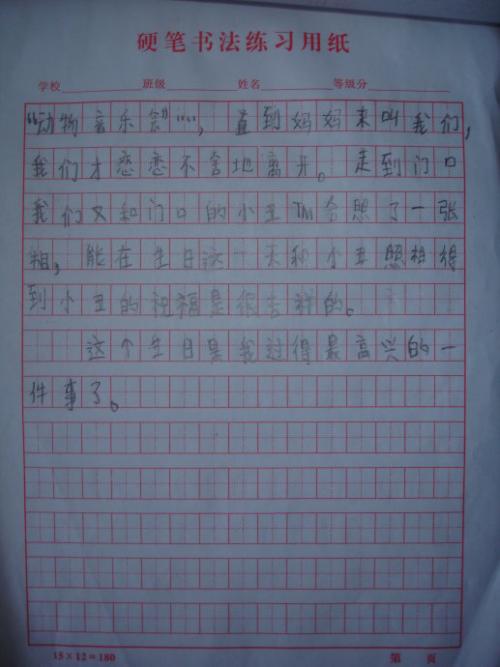 硬笔书法练习用纸
学校 班级 姓名 等级分
“动物音乐会”……，直到妈妈来叫我们，
我们才恋恋不舍地离开。走到门口
我们又和门口的小丑TM合照了一张
相，能在生日这一天和小丑照相得
到小丑的祝福是很吉祥的。
这个生日是我过得最高兴的一
件事了。
15×12=180
第 页